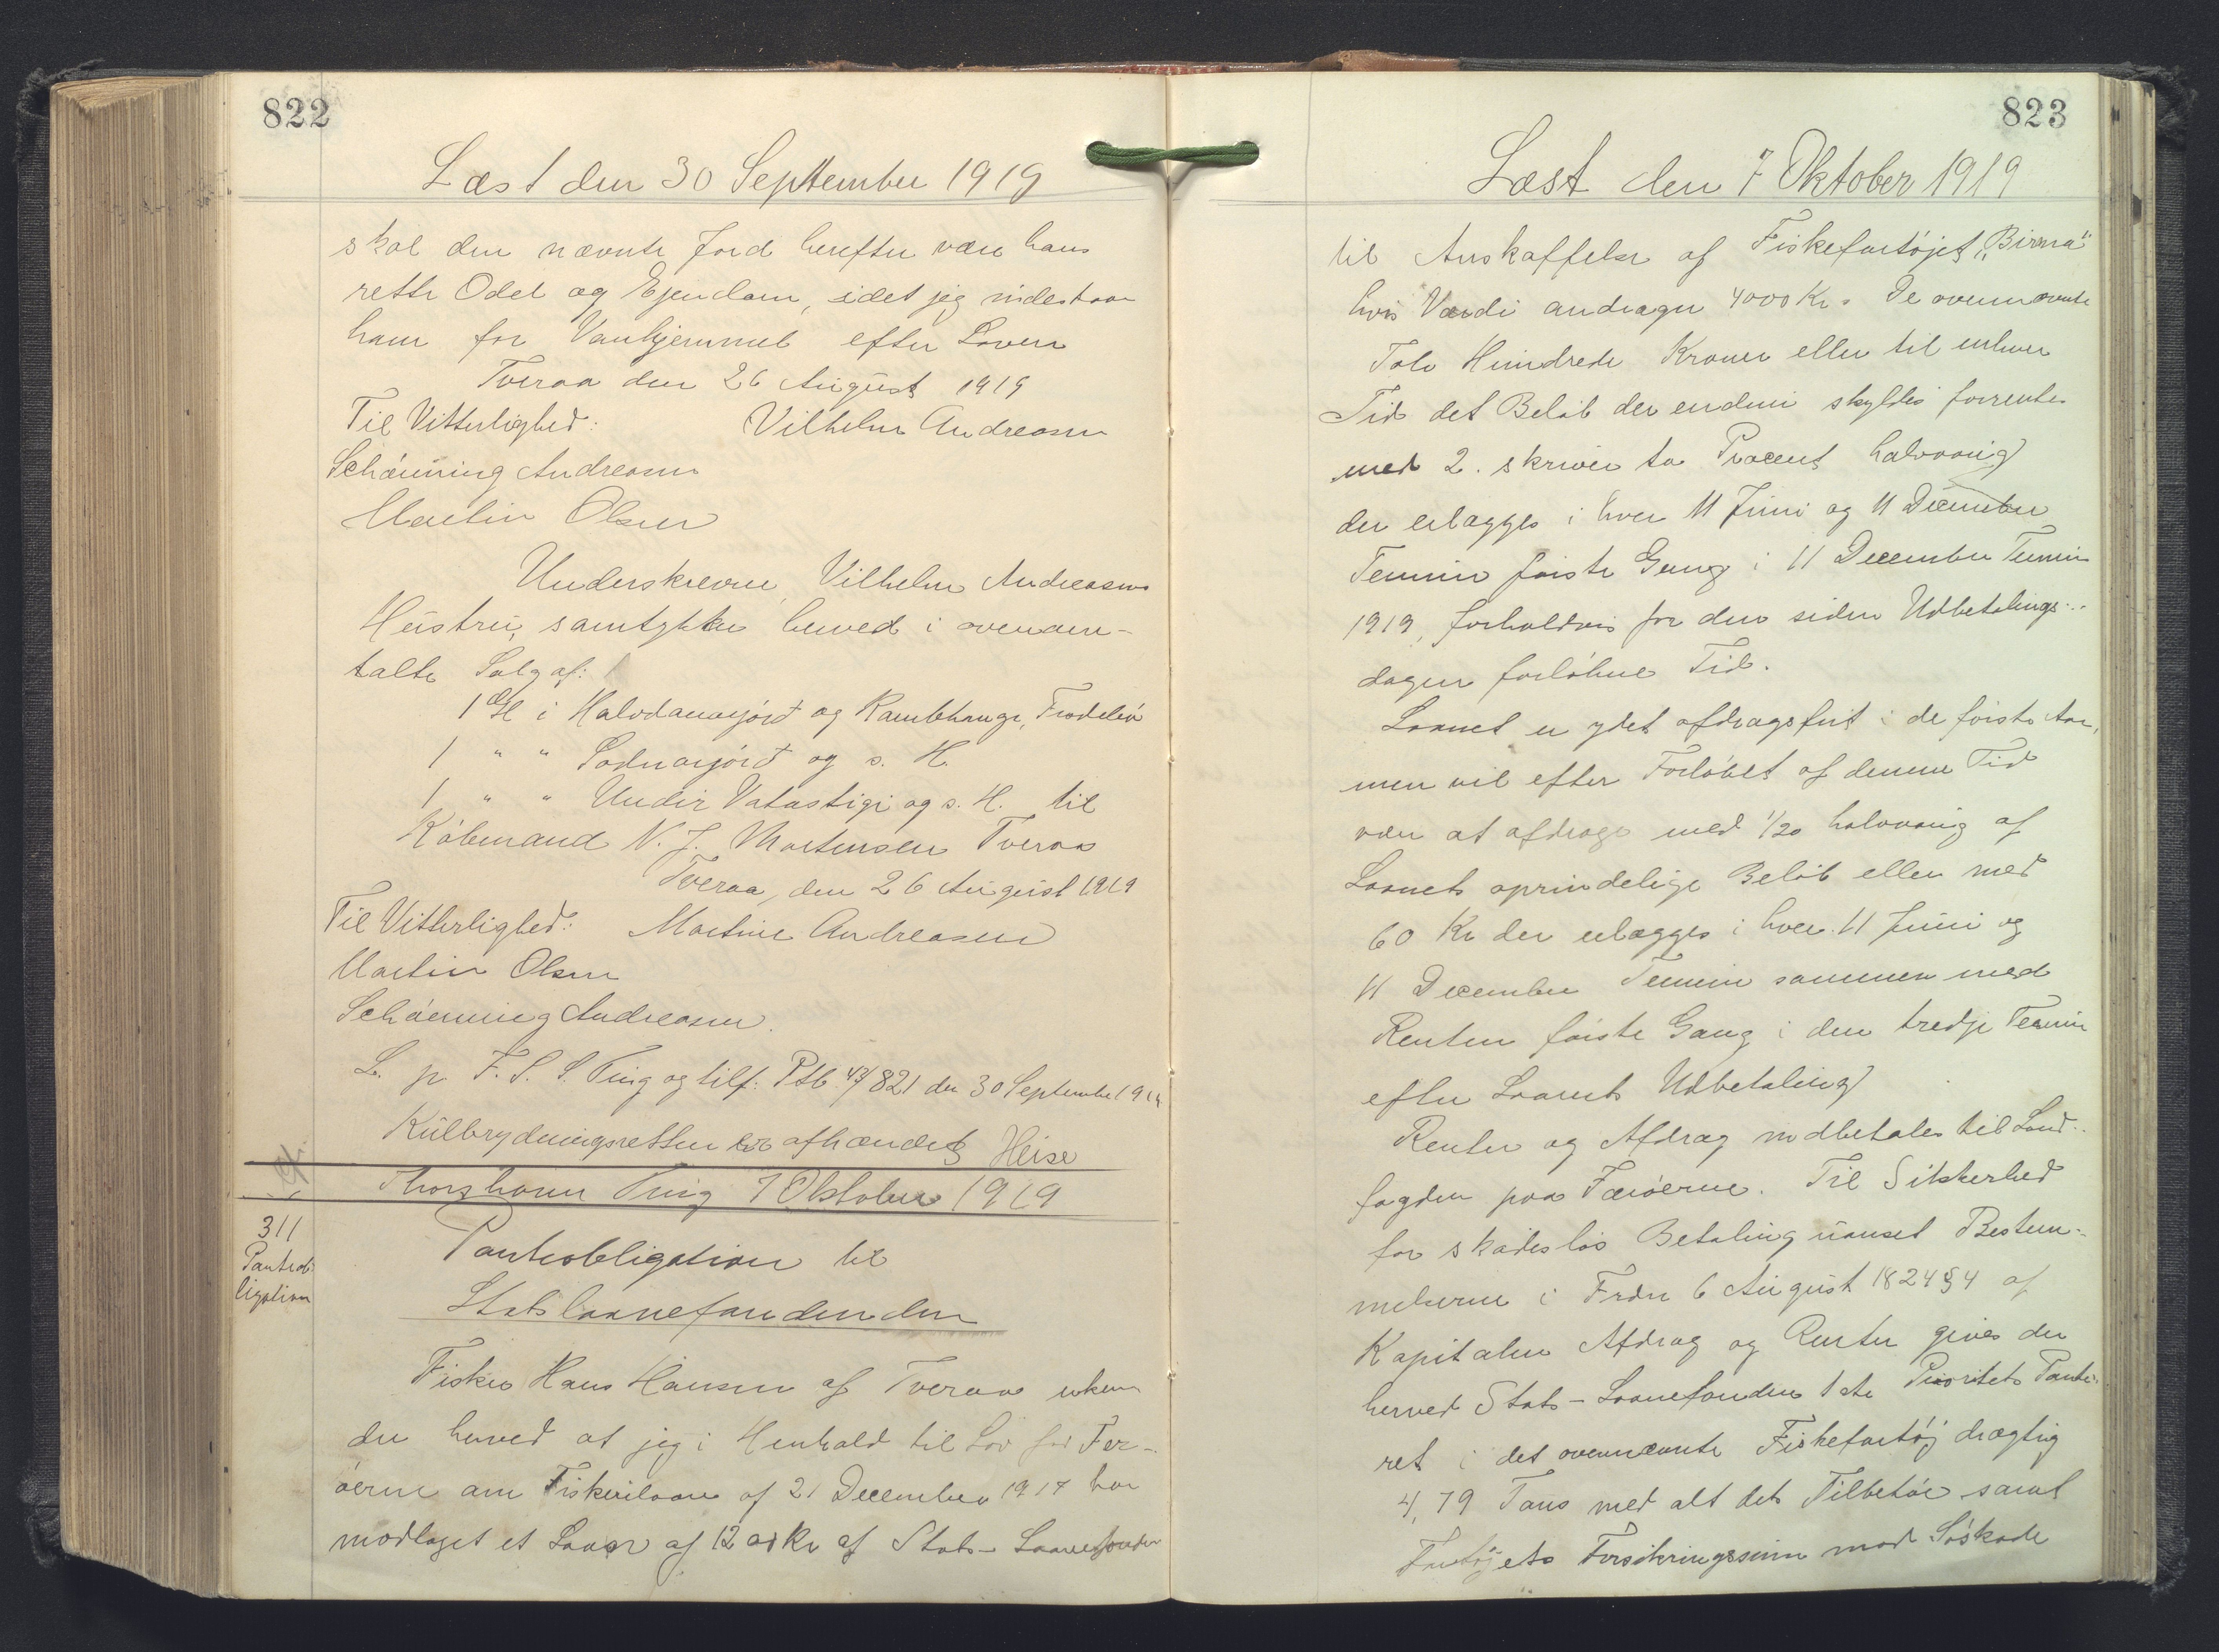 822
Læst den 30 September 1919
skal den nævnte Jord herefter være hans
rette Odel og Ejendom, idet jeg indestaar
ham for Vanhjemmel efter Loven
Tveraa den 26 August 1919
Til Vitterlighed: Vilhelm Andreasen
Schønning Andreasen
Martin Olsen
Underskrevne, Vilhelm Andreasens
Hustru, samtykker herved i ovenom-
talte Salg af:
1 i Halvdanarjørd og Rambhauge, Frodebø
1 " " Sodnarjørd og s. H.
1 " " Undir Vatnstigi og s. H. til
Købmand N. J. Mortensen Tveraa
Tveraa, den 26 August 1919
Til Vitterlighed: Martine Andreasen
Martin Olsen
Schønning Andreasen.
L. p. F. S. S. Ting og tilf: Ptb. 43/821 den 30 September 1919
Kulbrydningsretten er afhændet Heise
Thorshavn Ting 7 Oktober 1919
311
Panteob-
ligation
Panteobligation til
Statslaanefonden den
Fisker Hans Hansen af Tveraa erken
der herved at jeg i Henhold til Lov for Fær-
øerne om Fiskerilaan af 21 December 1917 har
modtaget et Laan af 1200 Kr af Stats-Laanefonden
823
Læst den 7 Oktober 1919
til Anskaffelse af Fiskefartøjet „Birna"
hvis Værdi andrager 4000 Kr. De ovennævnte
Tolv Hundrede Kroner eller til enhver
Tid det Beløb der endnu skyldes forrentes
med 2. skriver to Procent halvaarig
der erlægges i hver 11 Juni og 11 December
Termin første Gang i 11 December Termin
1919, forholdsvis for den siden Udbetalings-
dagen forløbne Tid.
Laanet er ydet afdragsfrit i de første Aar,
men vil efter Forløbet af denne Tid
være at afdrage med 1/20 halvaarig af
Laanets oprindelige Beløb eller med
60 Kr der erlægges i hver 11 Juni og
11 December Termin sammen med
Renten første Gang i den tredje Termin
efter Laanets Udbetaling
Renter og Afdrag indbetales til Land-
fogden paa Færøerne. Til Sikkerhed
for skadesløs Betaling uanset Bestem-
melserne i Frdn 6 August 1824 § 4 af
Kapitalen Afdrag og Renter gives der
herved Stats-Laanefonden 1ste Prioritets Pante-
ret i det ovennævnte Fiskefartøj drægtig
4,79 Tons med alt dets Tilbehør samt
Fartøjets Forsikringssum mod Søskade